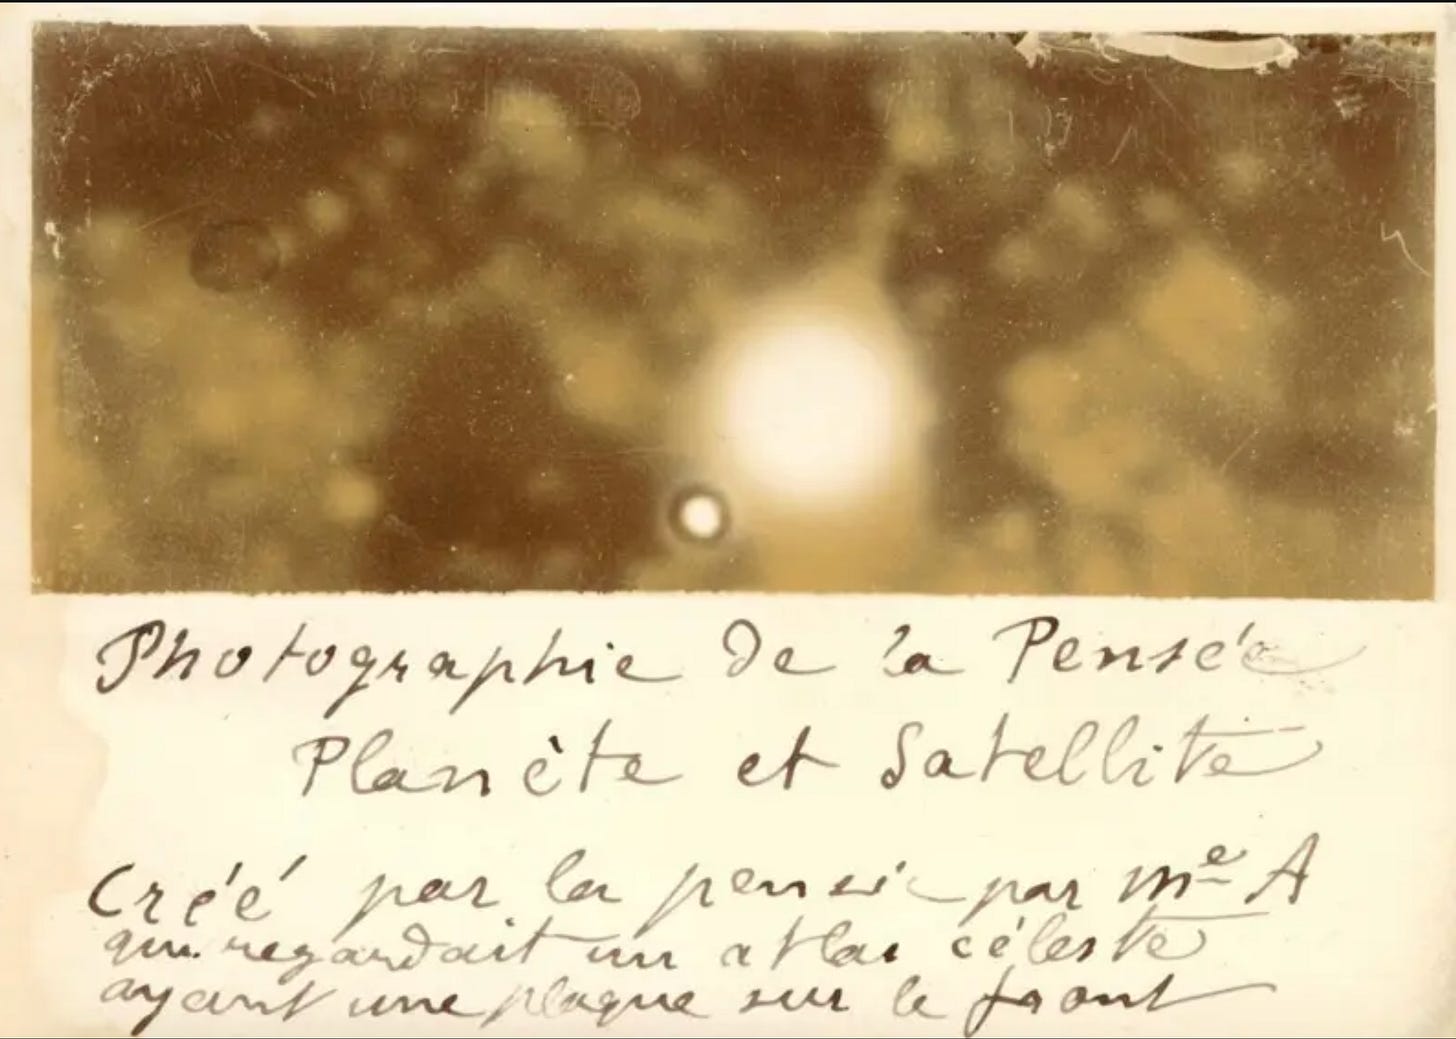 Photographie de la Pensée
Planète et Satellite
Créé par la pensée par Me A
qui regardait un atlas céleste
ayant une plaque sur le front